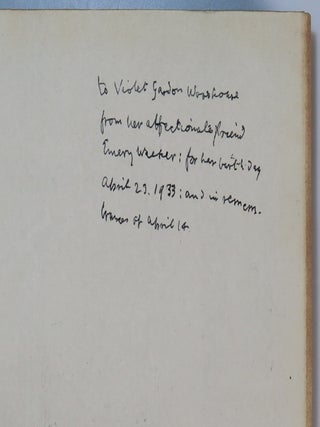 to Violet Gordon Woodhouse
from her affectionate friend
Emery Walker: for her birth day
April 23. 1933: and in remem-
brance of April 14